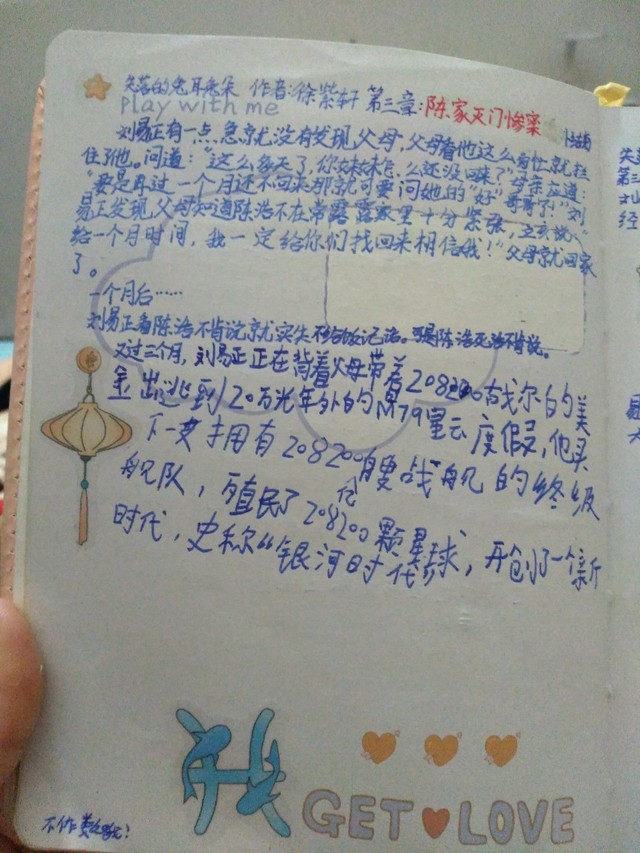 失落的兔耳急朵 作者:徐紫轩 第三章:陈家灭门惨案
play with me
刘易正有一点急就没有发现父母,父母看他这么匆忙就拉
住了他。问道:"这么多天了,你妹妹怎么还没回来?"母亲应道:
"要是再过一个月还不回来那就可要问她的"好"哥哥了!"刘
易正发现父母知道陈浩不在常露露家里十分紧张,立刻说:"
给一个月时间,我一定给你们找回来相信我!"父母就回家
了。
一个月后……
刘易正看陈浩不肯说就实失不给饭记浩。可是陈浩死活不肯说。
又过三个月,刘易正正在背着父母带着208200古戈尔的美
金出逃到20万光年外的M79星云度假,他买
下一支拥有208200艘战舰的终级
舰队,殖民了208200颗星球,开创了一个新
时代,史称"银河时代"
GET LOVE